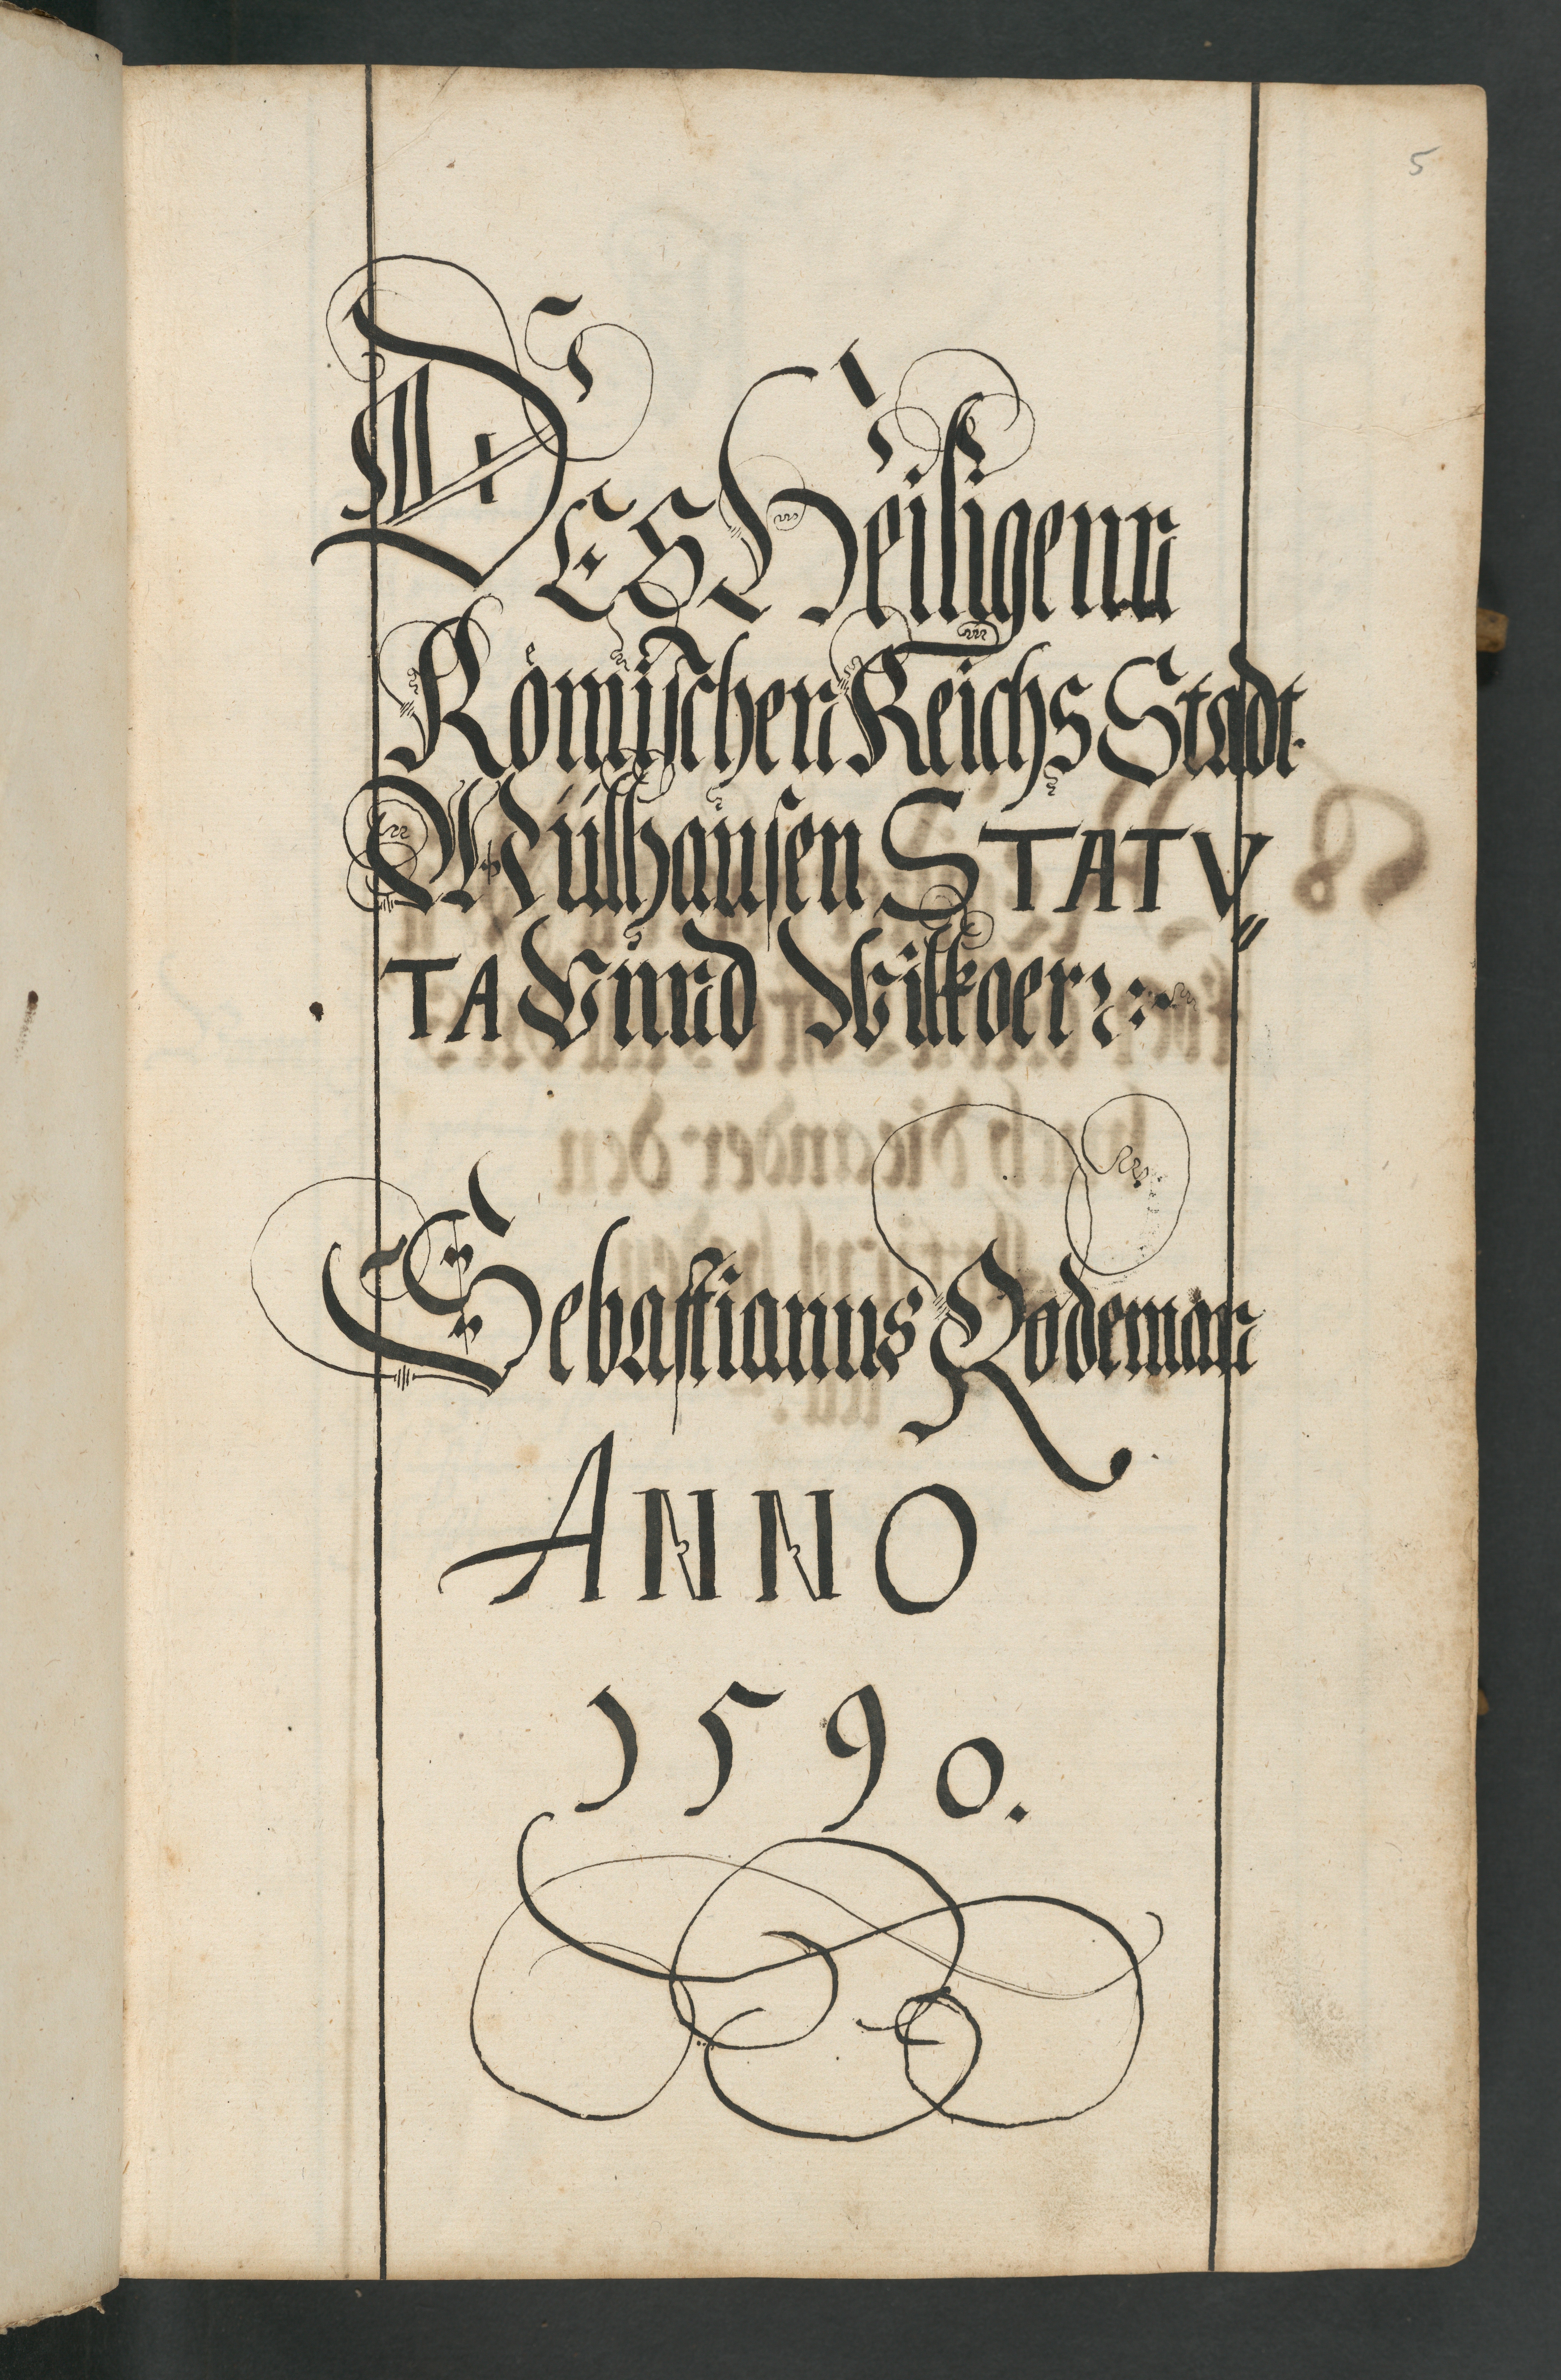 5
DES Heiligenn
Römischen Reichs Stadt
Mülhausen STATV⸗
TA Vnnd Wilkoer
Sebastianus Rodeman
ANNO
1590.